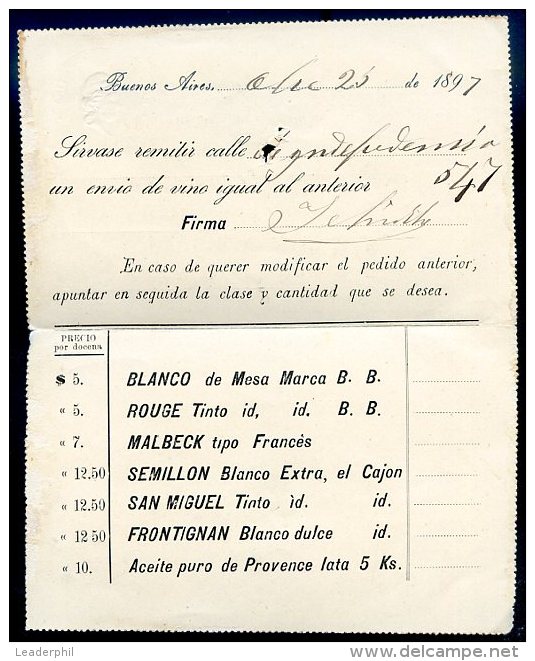 Buenos Aires, Dic 25 de 1897
Sírvase remitir calle Independensia
un envio de vino igual al anterior 547
Firma
En caso de querer modificar el pedido anterior,
apuntar en seguida la clase y cantidad que se desea.
PRECIO
por docena
$ 5. BLANCO de Mesa Marca B. B.
« 5. ROUGE Tinto id, id. B. B.
« 7. MALBECK tipo Francès
« 12.50 SEMILLON Blanco Extra, el Cajon
« 12.50 SAN MIGUEL Tinto ìd. id.
« 12 50 FRONTIGNAN Blanco dulce id.
« 10. Aceite puro de Provence lata 5 Ks.
Leaderphil
delcampe.net